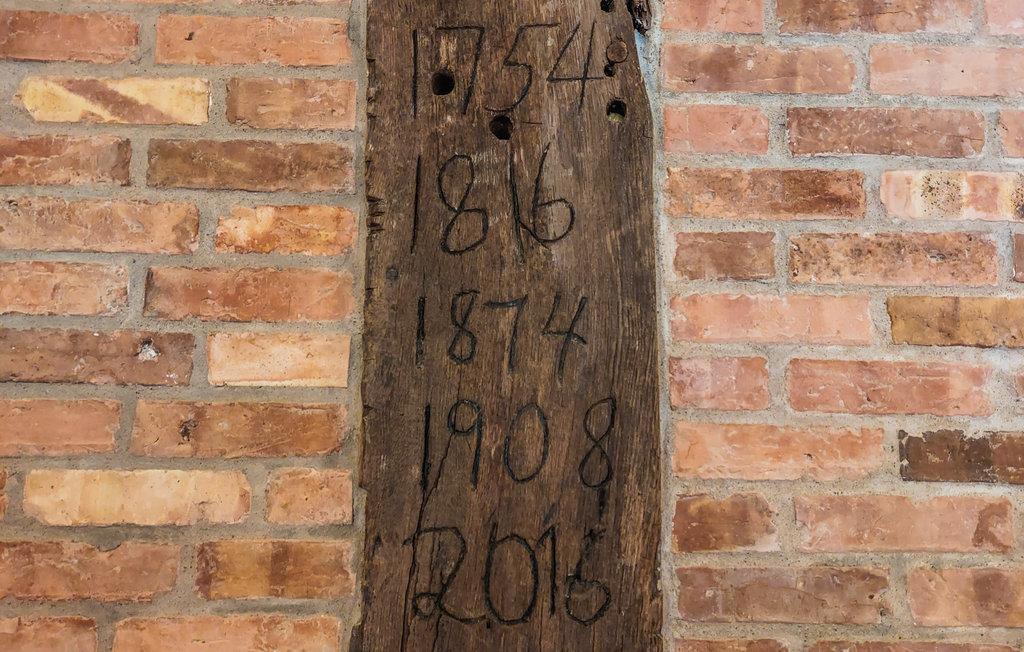 1754
1816
1874
1908
2016